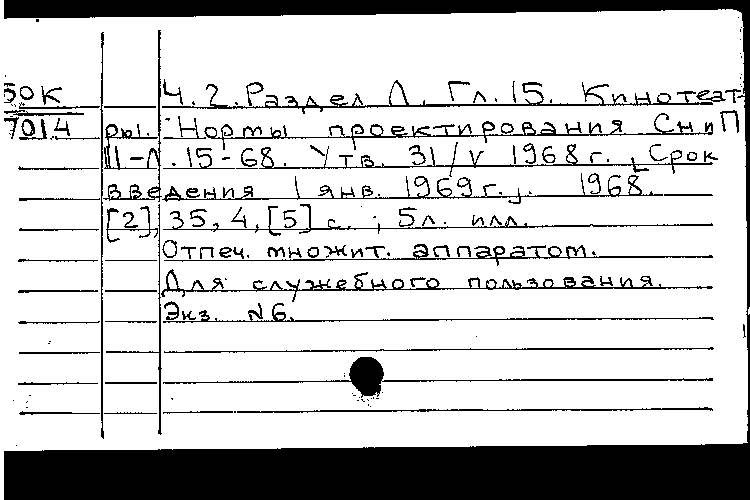 50К
7014
Ч. 2. Раздел Л. Гл. 15. Кинотеат-
ры. Нормы проектирования СниП
II-Л. 15-68. Утв. 31/V 1968г., Срок
введения 1 янв. 1969г. 1968.
[2], 35, 4, [5] с. ; 5л. илл.
Отпеч. множит. аппаратом.
Для служебного пользования.
Экз. №6.